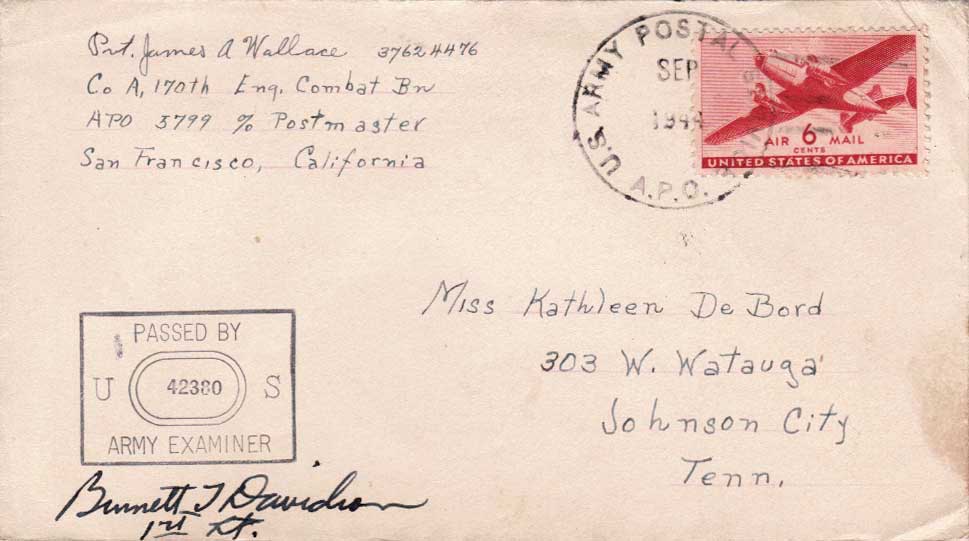 Pvt. James A Wallace 37624476
Co A, 170th Eng. Combat Bn
APO 3799 % Postmaster
San Francisco, California
U.S. ARMY POSTAL
SEP
1944
A.P.O.
AIR 6 MAIL
CENTS
UNITED STATES OF AMERICA
Miss Kathleen De Bord
303 W. Watauga
Johnson City
Tenn.
PASSED BY
U 42380 S
ARMY EXAMINER
Burnett T Davidson
1st Lt.